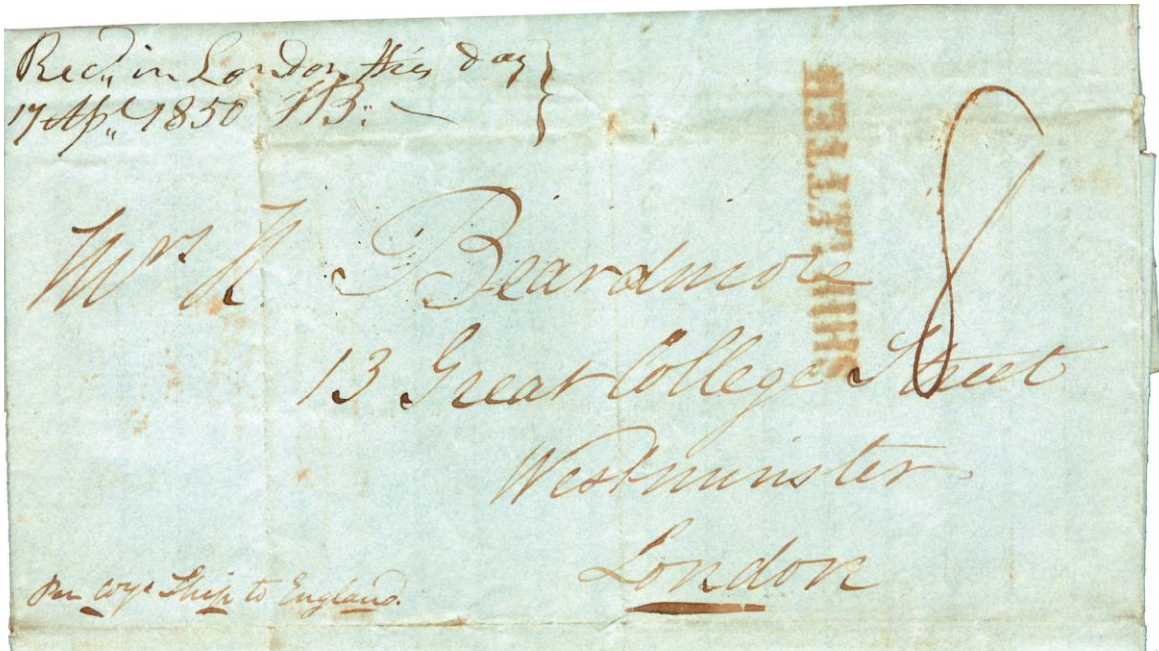 Rec,, in London this day
17 Ap,, 1850
SHIP LETTER
8
Mrs Beardmore
13 Great College Street
Westminster
London
Per Coys Ship to England.